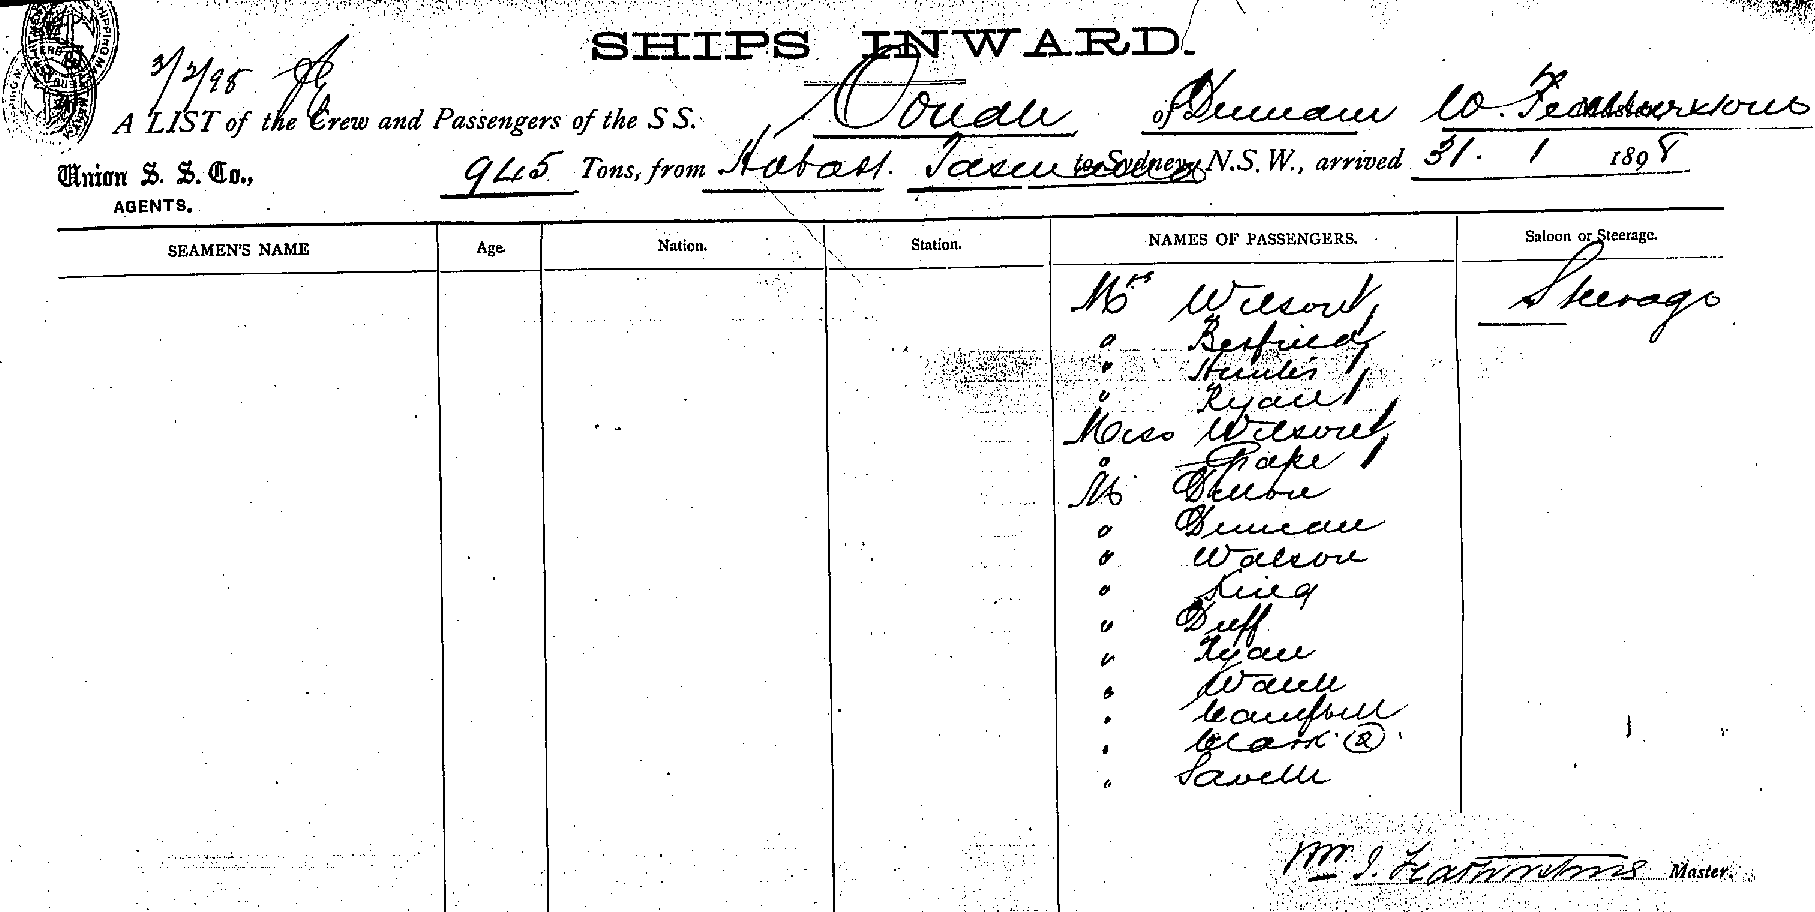 SHIPS INWARD.
3/2/98
A LIST of the Crew and Passengers of the S S. Oonah of Dunedin W. Featherstone
Union S. S. Co., AGENTS. 945 Tons, from Hobart. Tasmania to Sydney, N.S.W., arrived 31. 1 1898
SEAMEN'S NAME Age. Nation. Station. NAMES OF PASSENGERS. Saloon or Steerage.
Mrs Wilson Steerage
" 
" Hunter
" Ryan
Miss Wilson
"
Mr Dillon
" Duncan
" Watson
" King
" Duff
" Ryan
" Walsh
" Campbell
" Clark (2)
" Savelle
Wm. J. Featherstone Master.